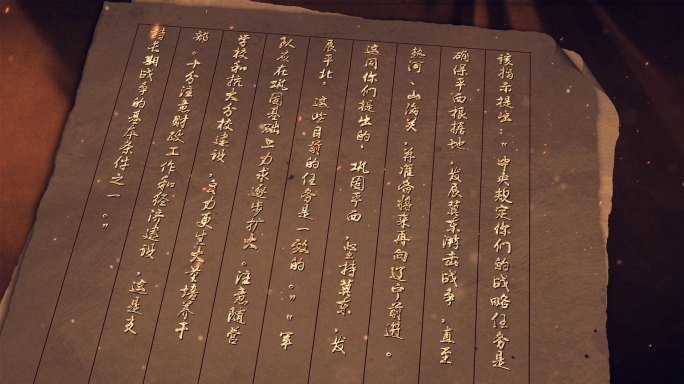 该指示提出：“中央规定你们的战略任务是
确保平西根据地，发展冀东游击战争，直至
热河、山海关，并准备将来再向辽宁前进。
这同你们提出的，巩固平西，坚持冀东，发
展平北，这些目前的任务是一致的。”“军
队应在巩固基础上力求逐步扩大。注意随营
学校和抗大分校建设，自力更生大量培养干
部。十分注意财政工作和经济建设，这是支
持长期战争的基本条件之一。”